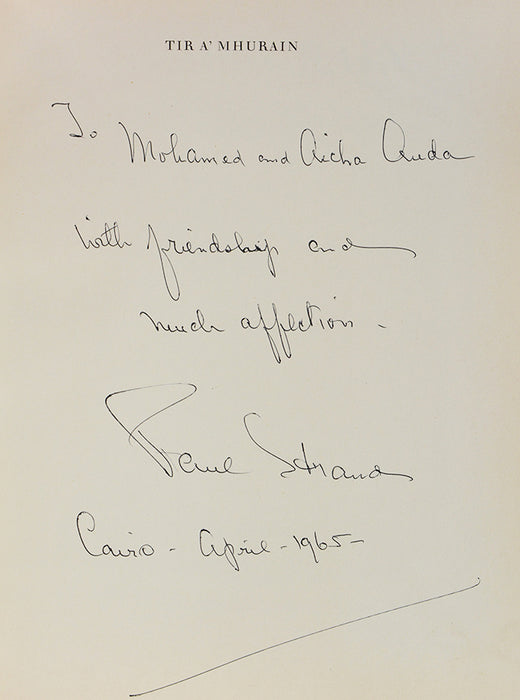 TIR A' MHURAIN
To
Mohamed and Aicha Auda
with friendship and
much affection.
Paul Strand
Cairo - April - 1965 -